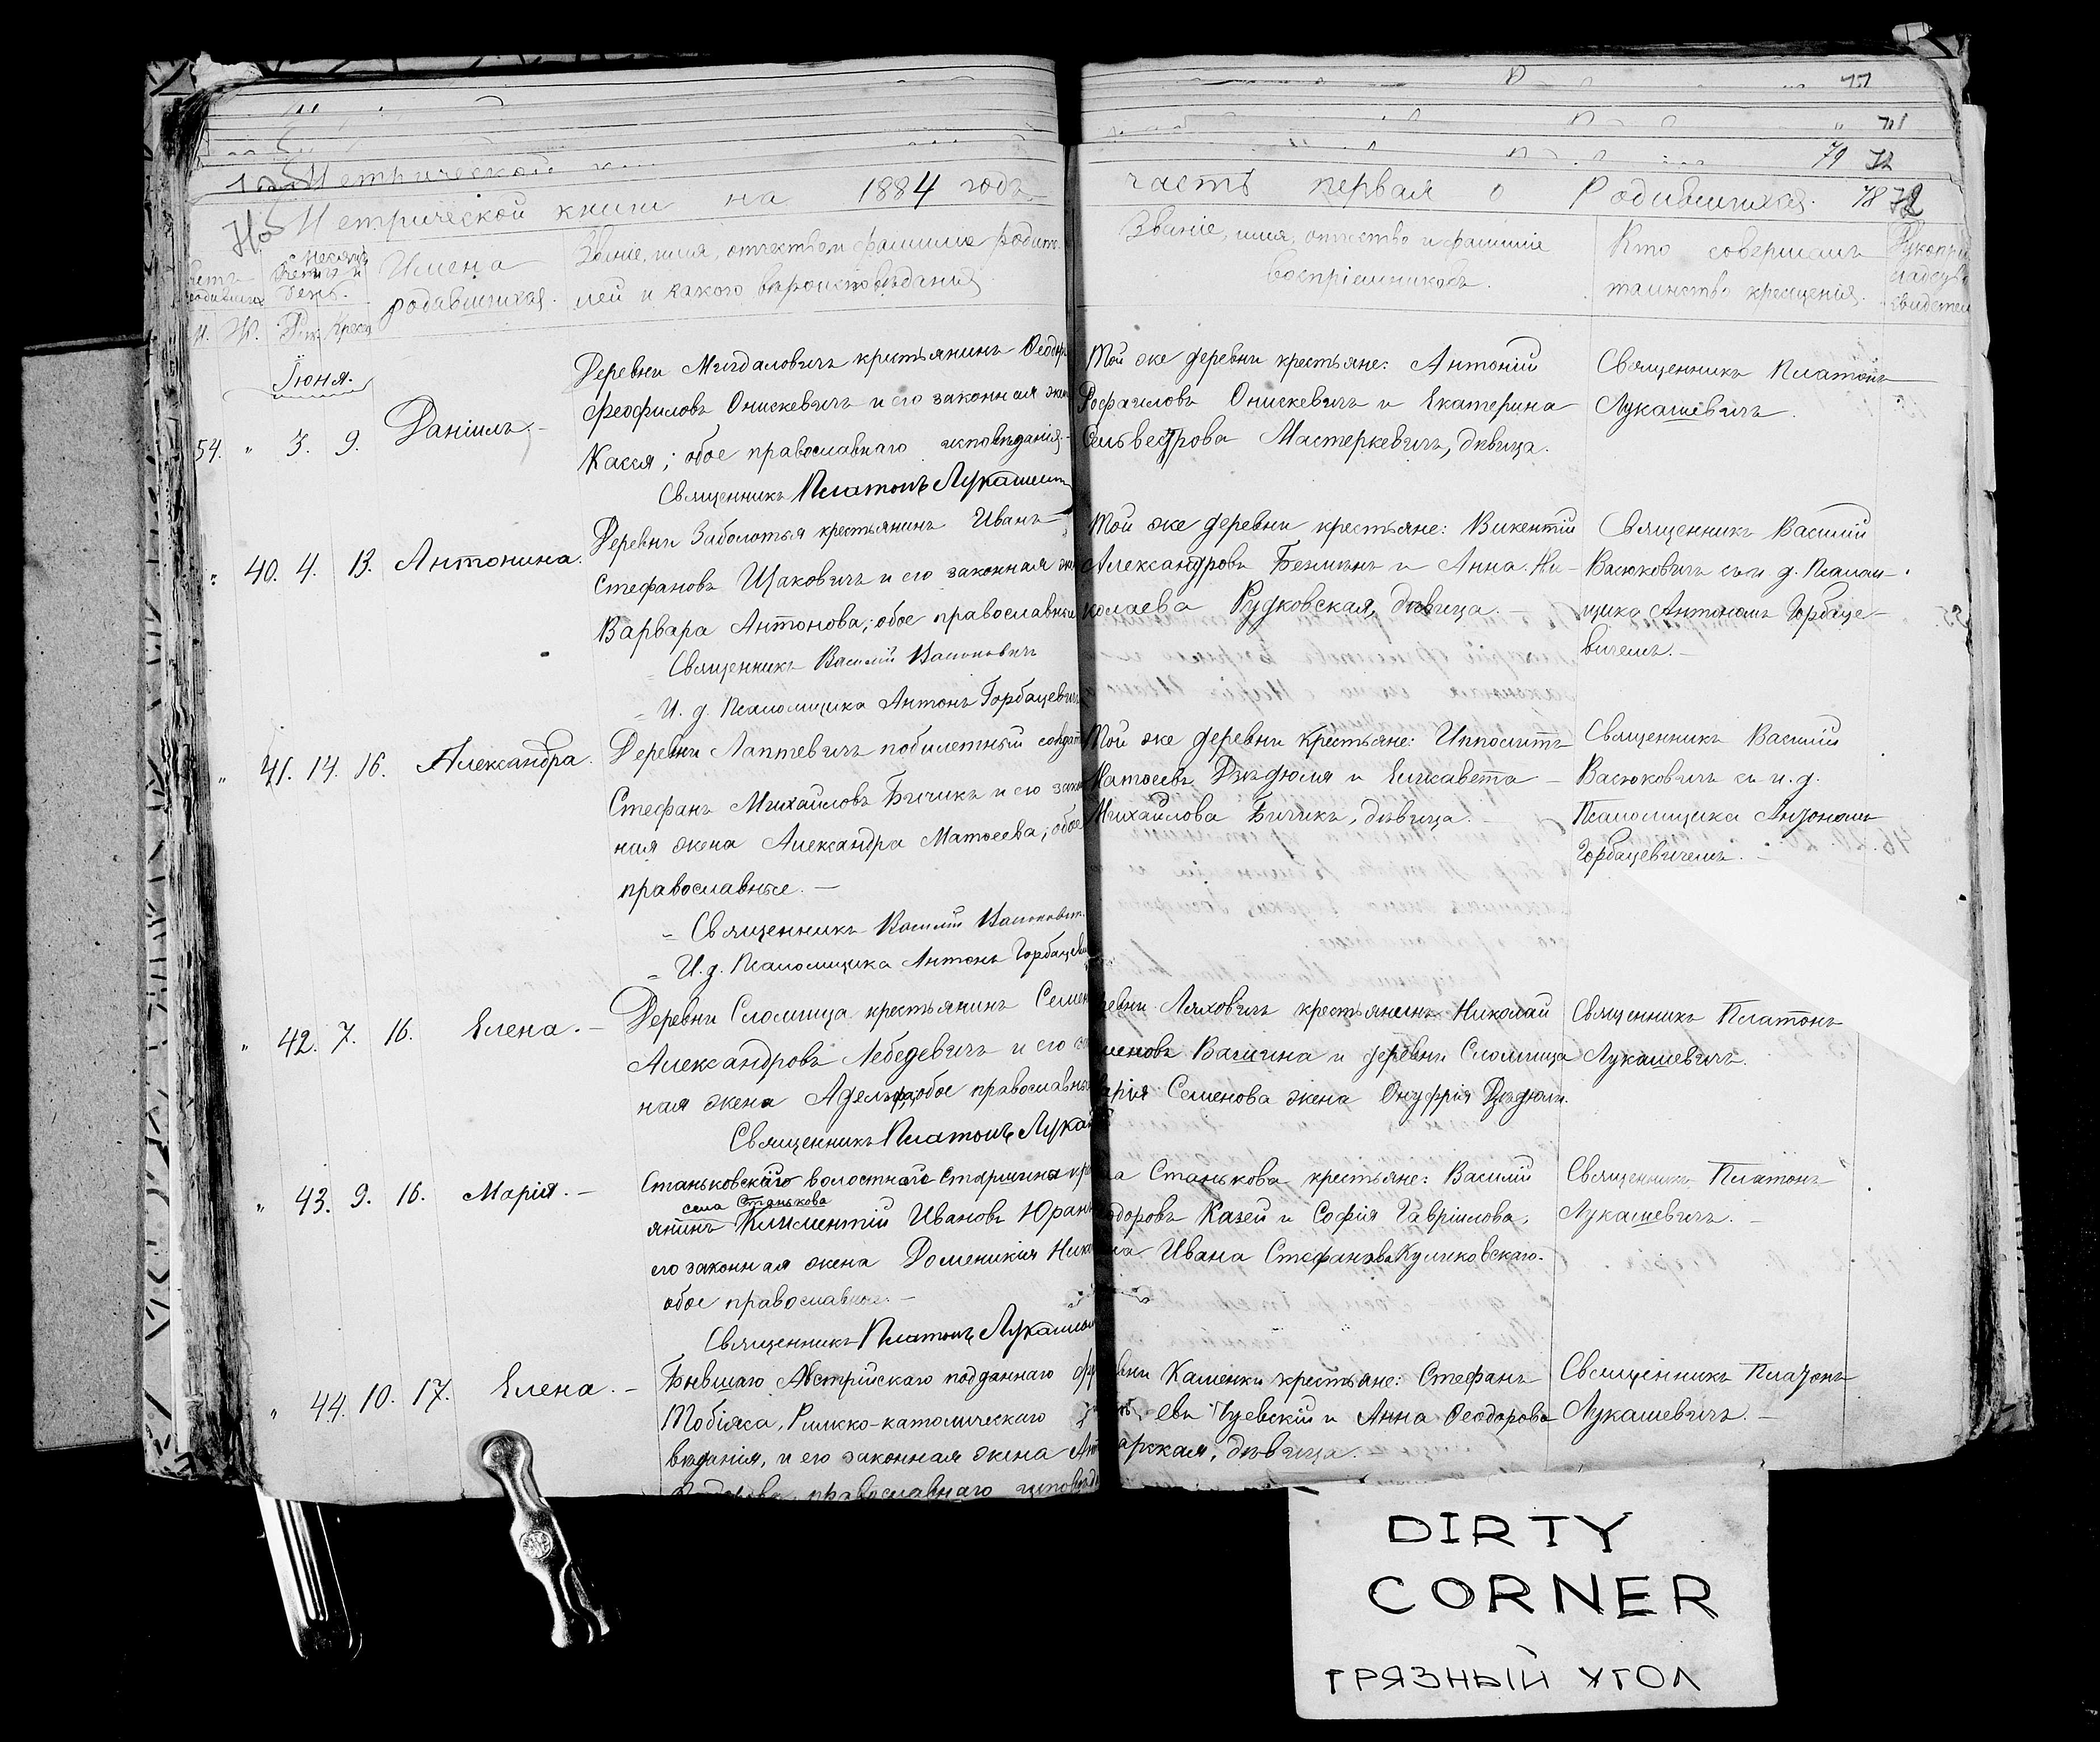 77
71
79 72
Метрической
Метрической книги на 1884 годъ
часть первая о Родившихся. 78 72
Месяцъ и день.
Имена родившихся.
Званіе, имя, отчество и фамилія родит
лей и какого вѣроисповѣданія
Званіе, имя, отчество и фамилія
воспріемниковъ.
Кто совершалъ
таинство крещенія.
М. Ж. Рож. Крещ
Іюня.
54. " 3. 9. Даніилъ.
Деревни Мигдаловичъ крестьянинъ Ѳеодор
Феофиловъ Онискевичъ и его законная жен
Касся; обое православнаго исповѣданія.
Священникъ Платонъ Лукашеви
Той же деревни крестьяне: Антоній
Рафаиловъ Онискевичъ и Екатерина
Сильвестрова Мастеркевичъ, дѣвица.
Священникъ Платонъ
Лукашевичъ.
" 40. 4. 13. Антонина.
Деревни Заболотья крестьянинъ Иванъ
Стефановъ Щаковичъ и его законная же
Варвара Антонова; обое православные
Священникъ Василій Васюковичъ
И. д. Псаломщика Антонъ Горбацевичъ
Той же деревни крестьяне: Викентій
Александровъ и Анна Ни-
колаева Рудковская, дѣвица.
Священникъ Василій
Васюковичъ съ и. д. Псалом-
щика Антономъ Горбаце-
вичемъ.
" 41. 14. 16. Александра.
Деревни Лаптевичъ побилетный солдат
Стефанъ Михайловъ Бичикъ и его закон
ная жена Александра Матвеева; обое
православные.
Священникъ Василій Васюкович
И. д. Псаломщика Антонъ Горбацеви
Той же деревни крестьяне: Ипполитъ
Матвеевъ Дзѣдюля и Елисавета
Михайлова Бичикъ, дѣвица.
Священникъ Василій
Васюковичъ съ и. д.
Псаломщика Антономъ
Горбацевичемъ.
" 42. 7. 16. Елена.
Деревни Сломица крестьянинъ Семен
Александровъ Лебедевичъ и его
ная жена обое православны
Священникъ Платонъ Лука
ревни Ляховичъ крестьянинъ Николай
меновъ Вашина и деревни Сломица
арія Семенова жена Онуфрія Дзѣдюли.
Священникъ Платонъ
Лукашевичъ.
" 43. 9. 16. Марія.
Станьковскаго волостнаго Старшина кре
села Станькова
янинъ Климентій Ивановъ Юран
его законная жена Доменикія Нико
обое православные.
Священникъ Платонъ Лукашев
ла Станькова крестьяне: Василій
одоровъ Казей и Софія Гавріилова,
на Ивана Стефанова Куликовскаго.
Священникъ Платонъ
Лукашевичъ.
" 44. 10. 17. Елена.
Бывшаго Австрійскаго подданнаго
Тобіяса, Римско-католическаго
вѣданія, и его законная жена Ан
православнаго исповѣд
вни Каменки крестьяне: Стефанъ
и Анна Ѳеодорова
арская, дѣвица.
Священникъ Платонъ
Лукашевичъ.
DIRTY
CORNER
ГРЯЗНЫЙ УГОЛ